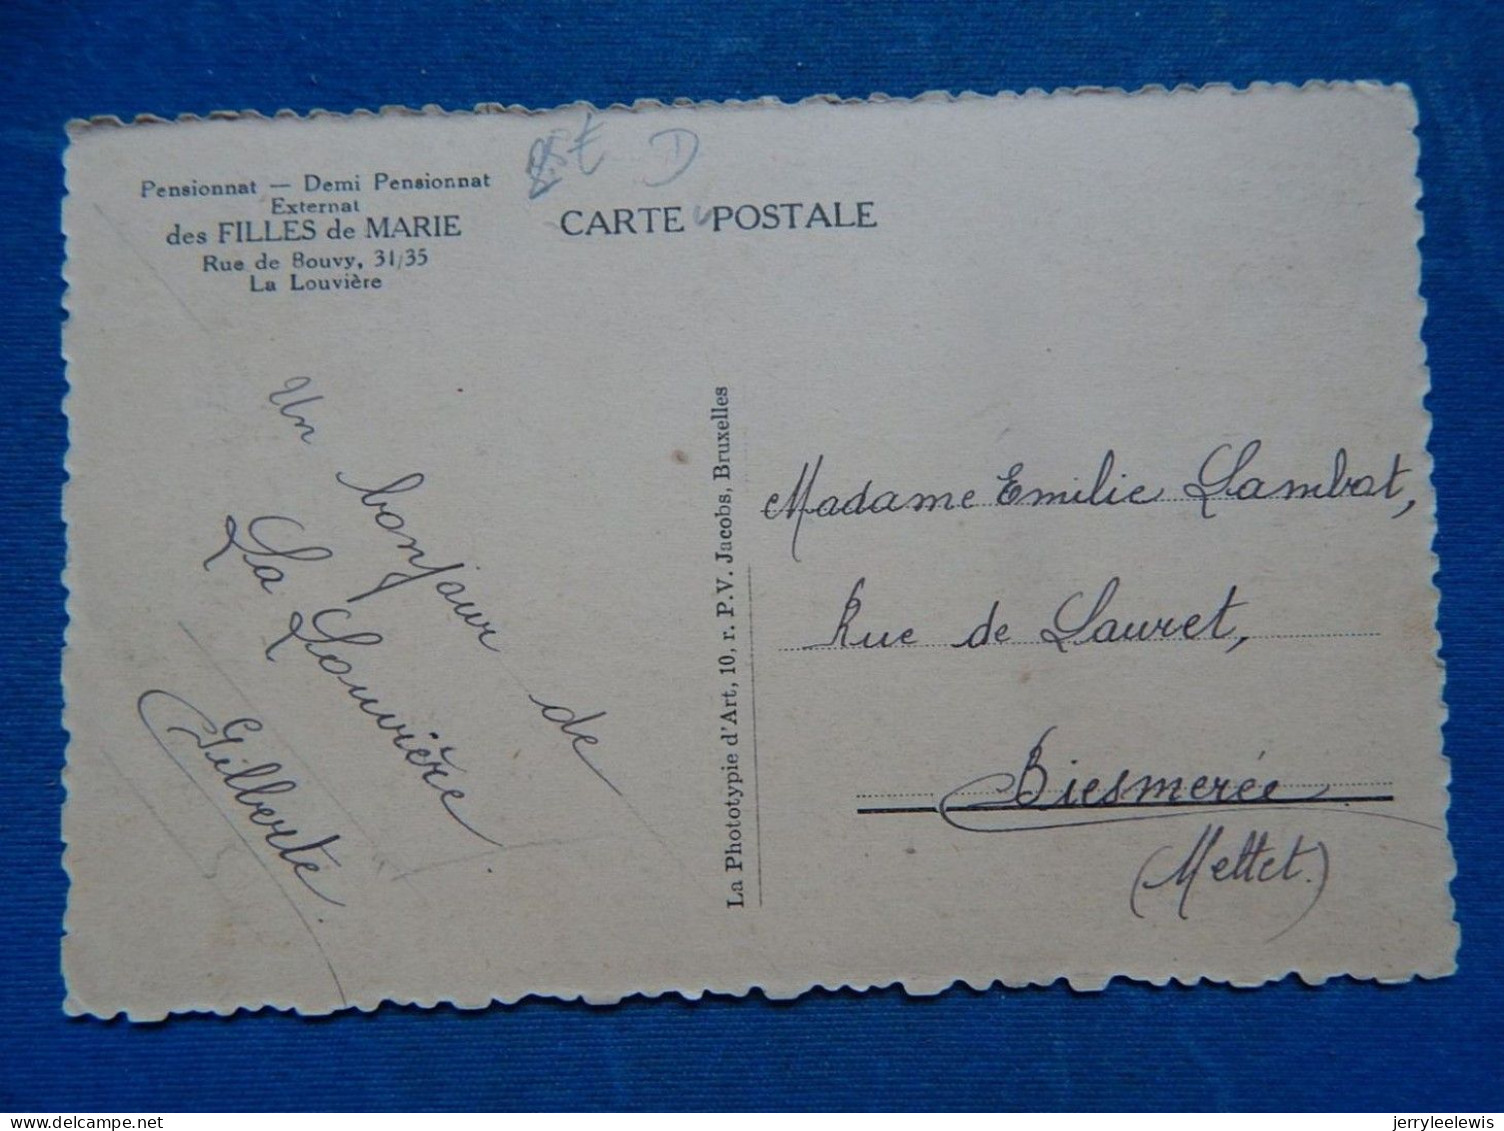 Pensionnat — Demi Pensionnat
Externat
des FILLES de MARIE
Rue de Bouvy, 31/35
La Louvière
D
CARTE POSTALE
Un bonjour de
La Louvière
Gilberte.
La Phototypie d'Art, 10, r. P. V. Jacobs, Bruxelles
Madame Emilie Lambot,
Rue de Lauret,
Biesmerée
(Mettet.)
jerryleelewis